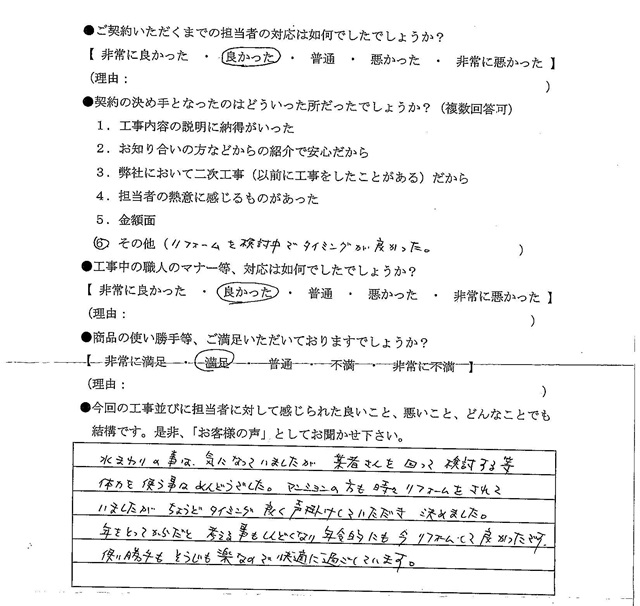 ●ご契約いただくまでの担当者の対応は如何でしたでしょうか？
【 非常に良かった ・ 良かった ・ 普通 ・ 悪かった ・ 非常に悪かった 】
（理由： ）
●契約の決め手となったのはどういった所だったでしょうか？（複数回答可）
１．工事内容の説明に納得がいった
２．お知り合いの方などからの紹介で安心だから
３．弊社において二次工事（以前に工事をしたことがある）だから
４．担当者の熱意に感じるものがあった
５．金額面
⑥ その他（リフォームを検討中でタイミングが良かった。 ）
●工事中の職人のマナー等、対応は如何でしたでしょうか？
【 非常に良かった ・ 良かった ・ 普通 ・ 悪かった ・ 非常に悪かった 】
（理由： ）
●商品の使い勝手等、ご満足いただいておりますでしょうか？
【 非常に満足 ・ 満足 ・ 普通 ・ 不満 ・ 非常に不満 】
（理由： ）
●今回の工事並びに担当者に対して感じられた良いこと、悪いこと、どんなことでも
結構です。是非、「お客様の声」としてお聞かせ下さい。
水まわりの事は、気になっていましたが 業者さんを回って検討する等
体力を使う事はめんどうでした。マンションの方も時々リフォームをされて
いましたが ちょうどタイミング良く声掛けしていただき 決めました。
年をとってからだと 考える事もしんどくなり 年令的にも今リフォームして良かったです。
使い勝手も そうじも楽なので快適に過ごしています。